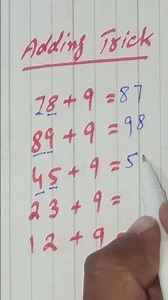 Adding Trick
78 + 9 = 87
89 + 9 = 98
45 + 9 = 5
23 + 9 =
12 + 9 =